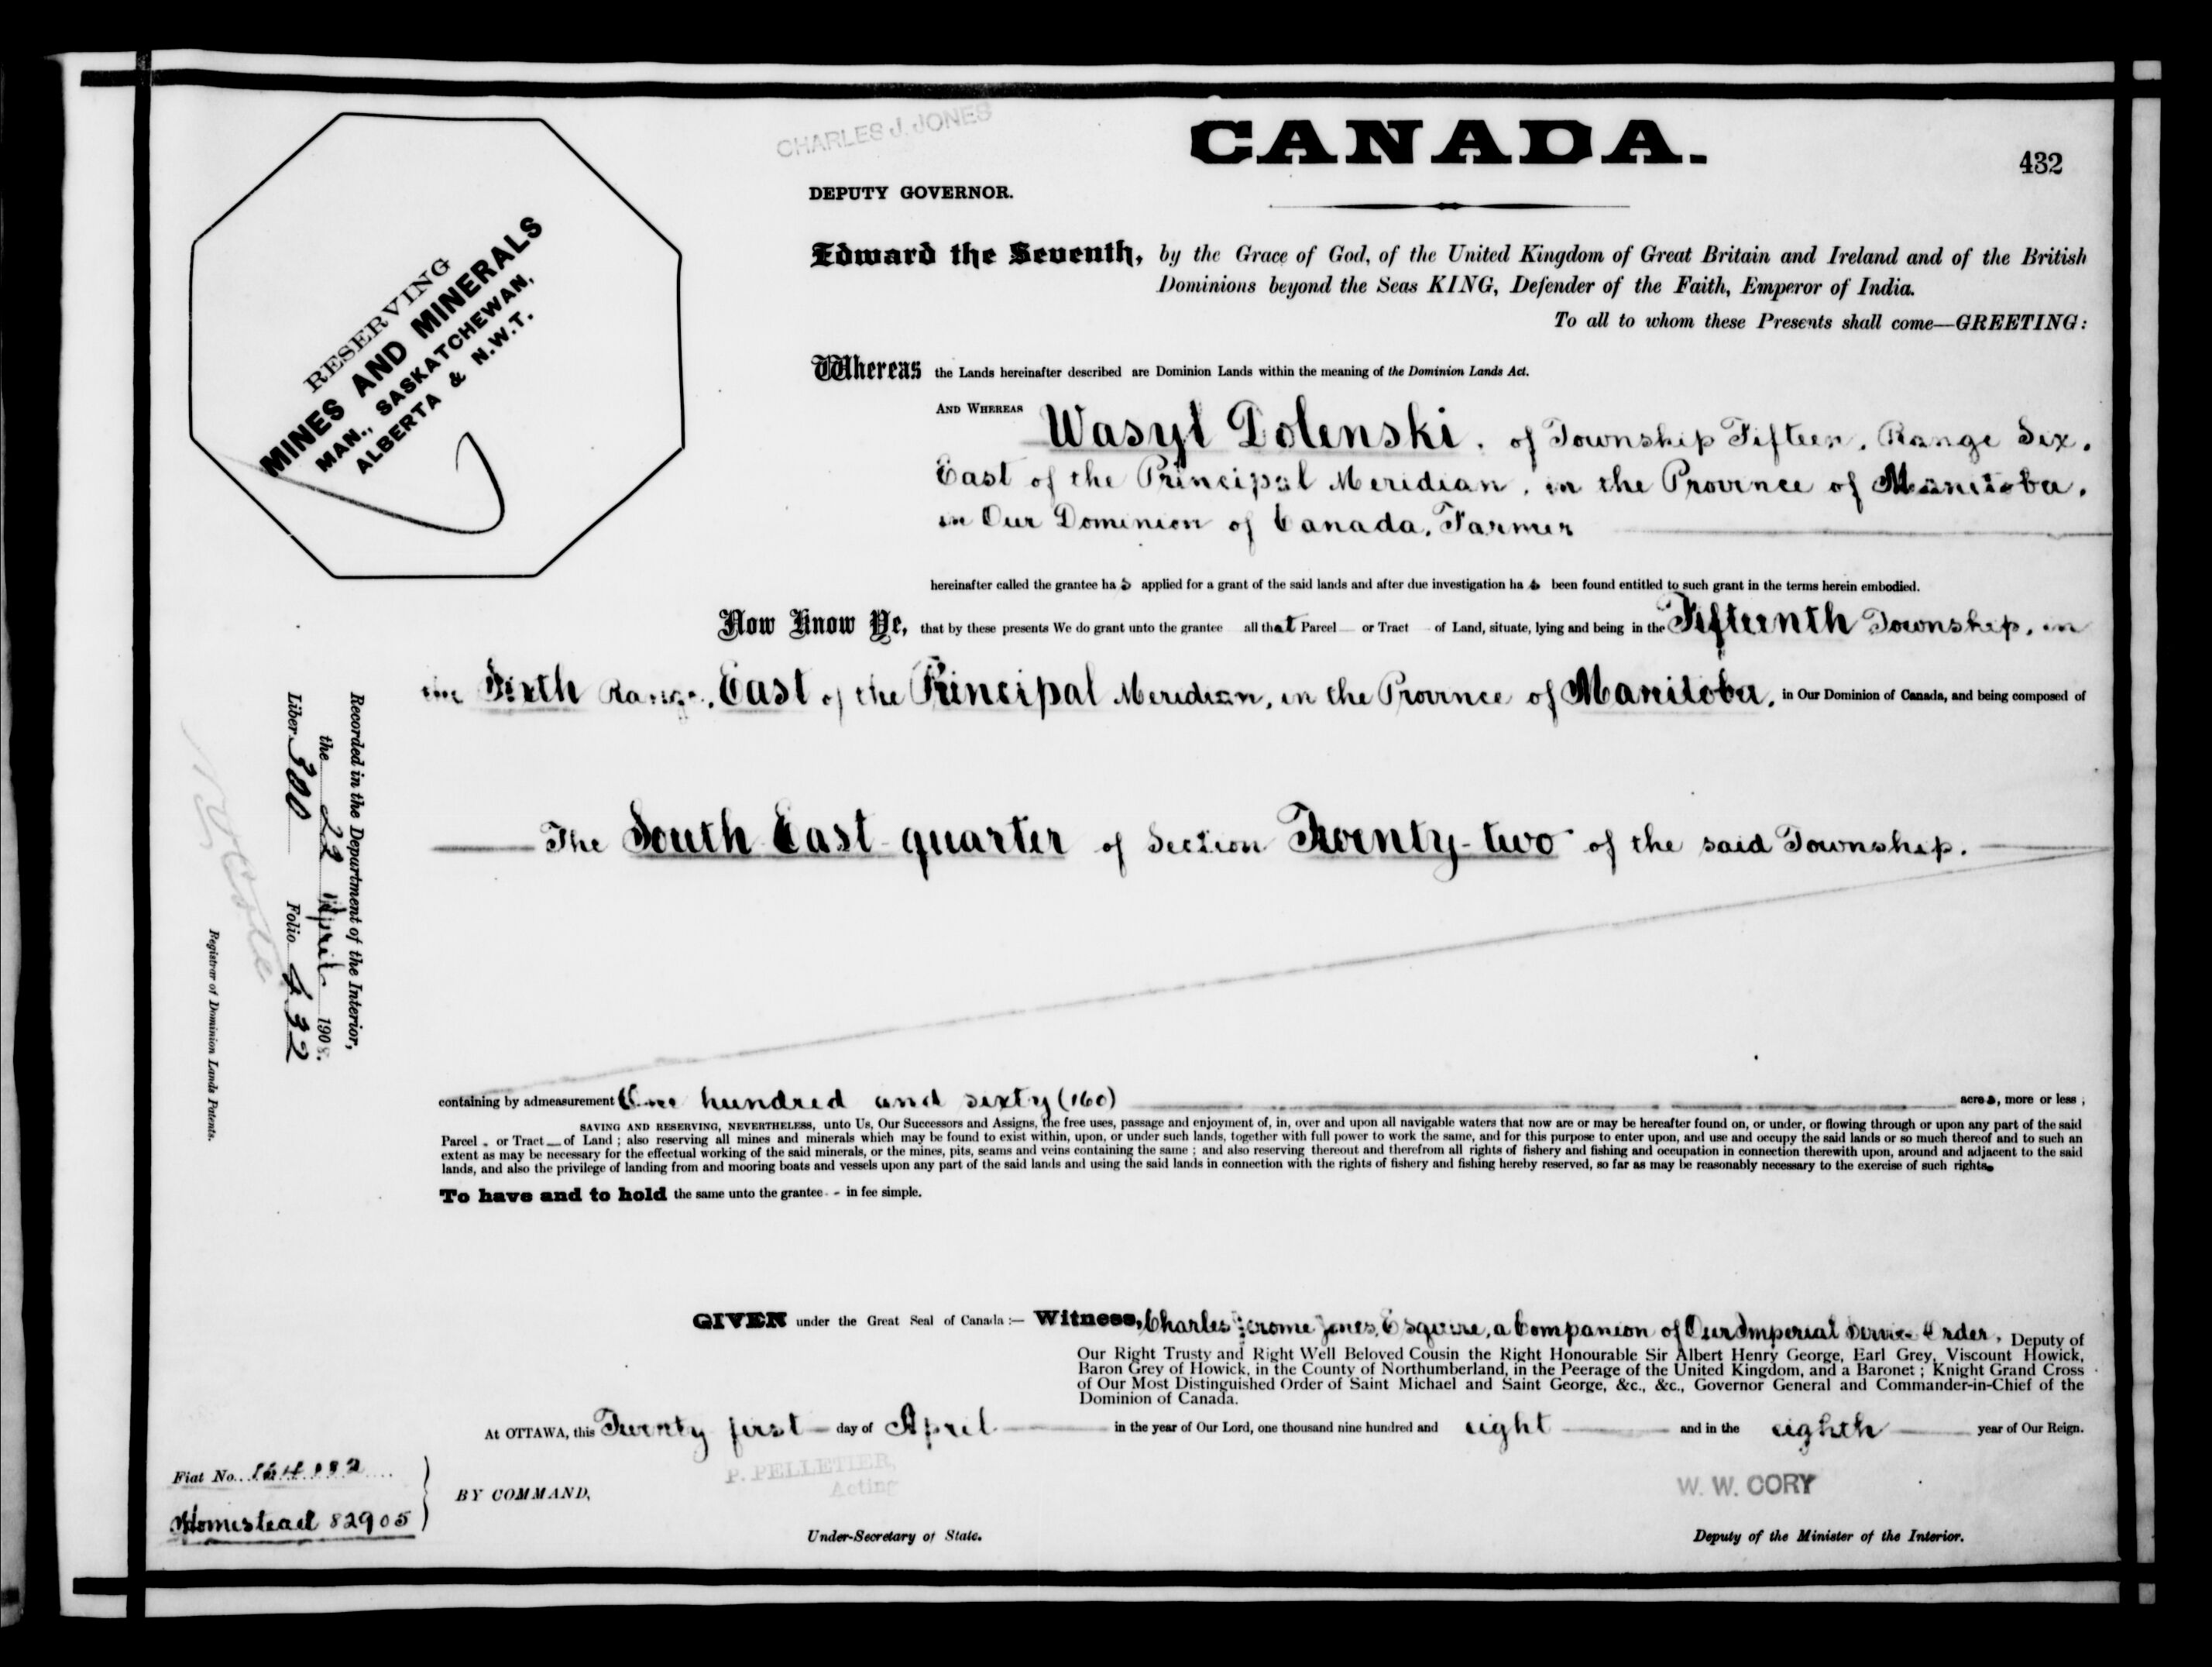 CHARLES J. JONES
CANADA.
432
DEPUTY GOVERNOR.
RESERVING
MINES AND MINERALS
MAN., SASKATCHEWAN,
ALBERTA & N.W.T.
Edward the Seventh, by the Grace of God, of the United Kingdom of Great Britain and Ireland and of the British
Dominions beyond the Seas KING, Defender of the Faith, Emperor of India.
To all to whom these Presents shall come—GREETING:
Whereas the Lands hereinafter described are Dominion Lands within the meaning of the Dominion Lands Act.
AND WHEREAS Wasyl Dolenski, of Township Fifteen, Range Six,
East of the Principal Meridian, in the Province of Manitoba,
in Our Dominion of Canada, Farmer
hereinafter called the grantee has applied for a grant of the said lands and after due investigation has been found entitled to such grant in the terms herein embodied.
Now Know Ye, that by these presents We do grant unto the grantee all that Parcel or Tract of Land, situate, lying and being in the Fifteenth Township, in
the Sixth Range, East of the Principal Meridian, in the Province of Manitoba, in Our Dominion of Canada, and being composed of
The South East quarter of Section Twenty-two of the said Township.
Recorded in the Department of the Interior,
the 22 April 1908.
Liber 300 Folio 432
Registrar of Dominion Lands Patents.
containing by admeasurement One hundred and sixty (160) acres, more or less;
SAVING AND RESERVING, NEVERTHELESS, unto Us, Our Successors and Assigns, the free uses, passage and enjoyment of, in, over and upon all navigable waters that now are or may be hereafter found on, or under, or flowing through or upon any part of the said
Parcel or Tract of Land; also reserving all mines and minerals which may be found to exist within, upon, or under such lands, together with full power to work the same, and for this purpose to enter upon, and use and occupy the said lands or so much thereof and to such an
extent as may be necessary for the effectual working of the said minerals, or the mines, pits, seams and veins containing the same; and also reserving thereout and therefrom all rights of fishery and fishing and occupation in connection therewith upon, around and adjacent to the said
lands, and also the privilege of landing from and mooring boats and vessels upon any part of the said lands and using the said lands in connection with the rights of fishery and fishing hereby reserved, so far as may be reasonably necessary to the exercise of such rights.
To have and to hold the same unto the grantee - in fee simple.
GIVEN under the Great Seal of Canada:— Witness, Charles Jerome Jones, Esquire, a Companion of Our Imperial Service Order, Deputy of
Our Right Trusty and Right Well Beloved Cousin the Right Honourable Sir Albert Henry George, Earl Grey, Viscount Howick,
Baron Grey of Howick, in the County of Northumberland, in the Peerage of the United Kingdom, and a Baronet; Knight Grand Cross
of Our Most Distinguished Order of Saint Michael and Saint George, &c., &c., Governor General and Commander-in-Chief of the
Dominion of Canada.
At OTTAWA, this Twenty first day of April in the year of Our Lord, one thousand nine hundred and eight and in the eighth year of Our Reign.
P. PELLETIER,
Acting
W. W. CORY
Fiat No.
Homestead 82905
BY COMMAND,
Under-Secretary of State.
Deputy of the Minister of the Interior.